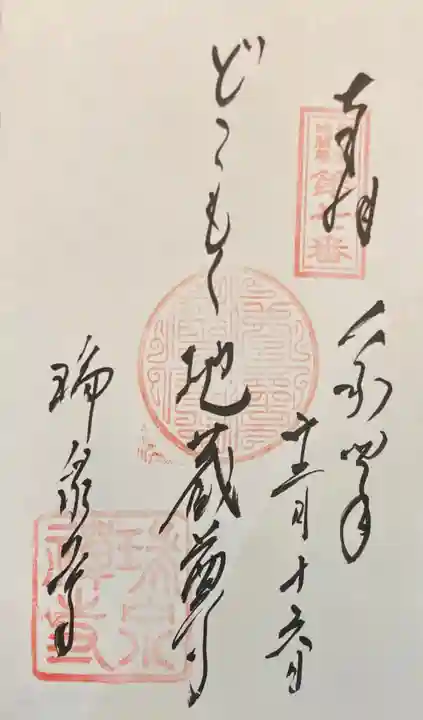 奉拝
第七番
令和四年
十二月十六日
どこもく地蔵尊
瑞泉寺